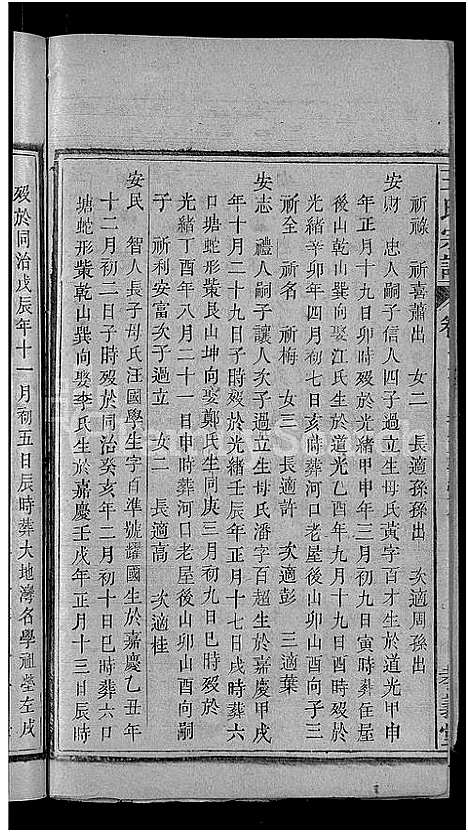 王氏宗譜
卷
孝義堂
祈祿 祈喜蕭出 女二 長適孫孫出 次適周孫出
安財 忠人嗣子信人四子過立生母氏黃字百才生於道光甲申
年正月十九日卯時歿於光緒甲申年三月初九日寅時葬住屋
後山乾山巽向娶江氏生於道光乙酉年九月十九日酉時歿於
光緒辛卯年四月初七日亥時葬河口老屋後山卯山酉向子三
祈全 祈名 祈梅 女三 長適許 次適彭 三適葉
安志 禮人嗣子讓人次子過立生母氏潘字百超生於嘉慶甲戌
年十月二十九日子時歿於光緒壬辰年正月十七日戌時葬六
口塘蛇形柴艮山坤向娶鄭氏生於同庚三月初九日巳時歿於
光緒丁酉年八月二十一日申時葬河口老屋後山卯山酉向嗣
子 祈利安富次子過立 女二 長適高 次適桂
安民 智人長子母氏汪國學生字自準號耀國生於嘉慶乙丑年
十二月初二日子時歿於同治癸亥年二月初十日巳時葬六口
塘蛇形柴乾山巽向娶李氏生於嘉慶壬戌年正月十三日辰時
歿於同治戊辰年十一月初五日辰時葬大地灣名學祖塋左戌